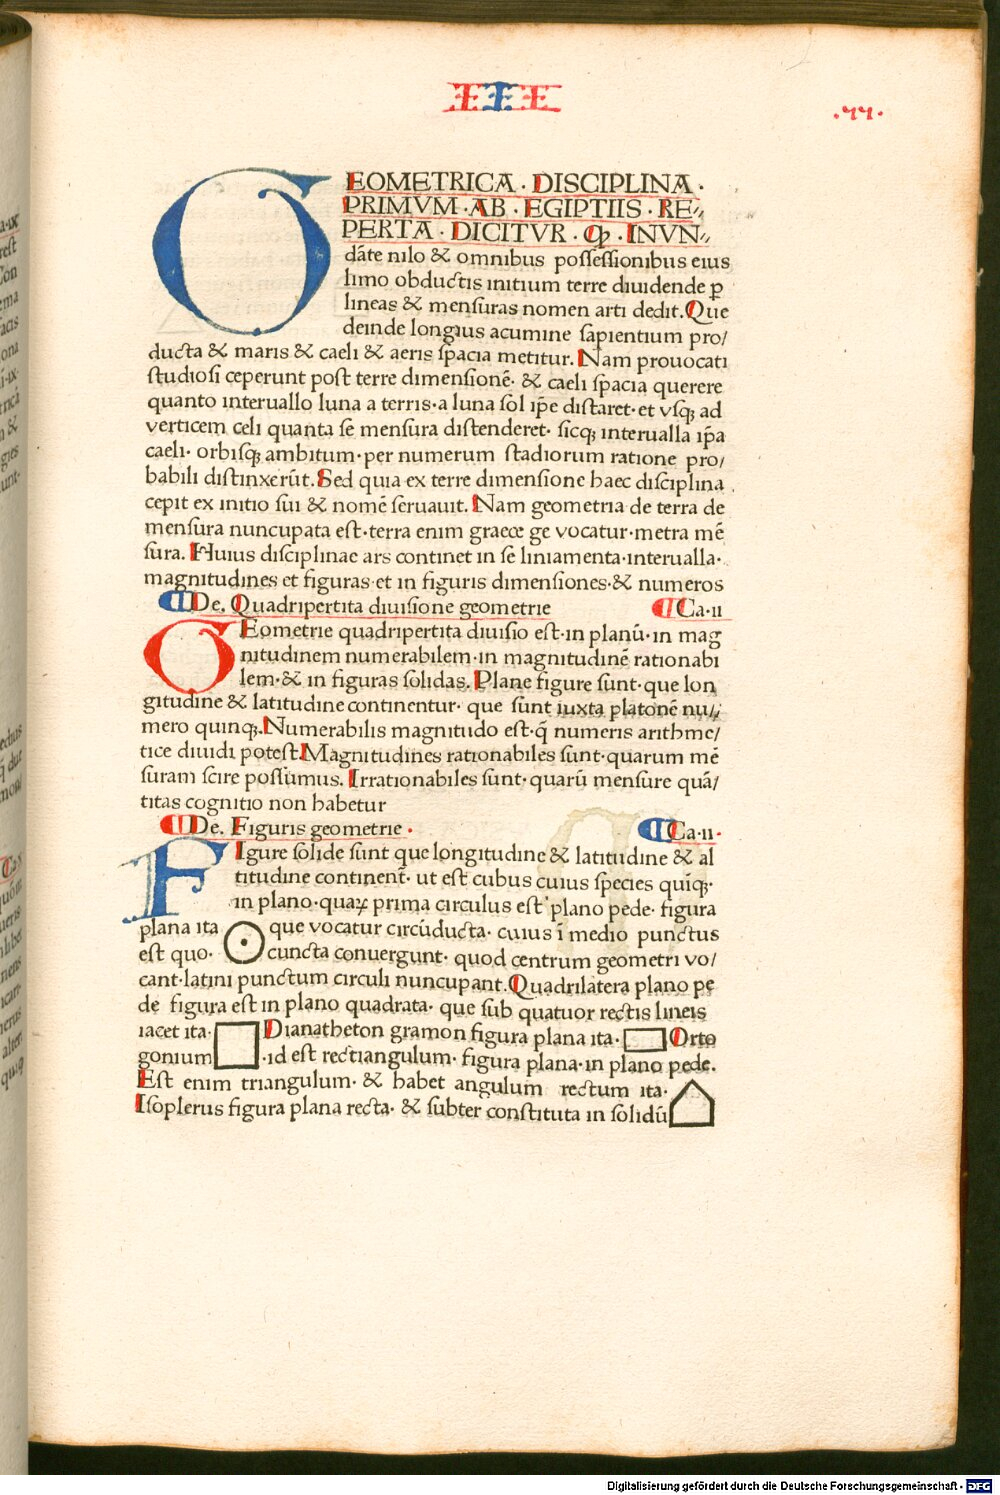 III
.77.
GEOMETRICA · DISCIPLINA ·
PRIMVM · AB · EGIPTIIS · RE⸗
PERTA · DICITVR · Ꝙ · INVN⸗
dāte nilo & omnibus possessionibus eius
limo obductis initium terre diuidende ꝑ
lineas & mensuras nomen arti dedit. Que
deinde longius acumine sapientium pro/
ducta & maris & caeli & aeris spacia metitur. Nam prouocati
studiosi ceperunt post terre dimensionē· & caeli spacia querere
quanto interuallo luna a terris·a luna sol ip̄e distaret·et vsqꝫ ad
verticem celi quanta se mensura distenderet· sicqꝫ interualla ip̄a
caeli· orbisqꝫ ambitum·per numerum stadiorum ratione pro/
babili distinxerūt. Sed quia ex terre dimensione haec disciplina
cepit ex initio sui & nomē seruauit. Nam geometria de terra de
mensura nuncupata est·terra enim graece ge vocatur·metra mē
sura. Huius disciplinae ars continet in se liniamenta·interualla·
magnitudines et figuras·et in figuris dimensiones·& numeros
¶De. Quadripertita diuisione geometrie ¶Ca·ii
GEometrie quadripertita diuisio est·in planū·in mag
nitudinem numerabilem·in magnitudinē rationabi
lem·& in figuras solidas. Plane figure sunt·que lon
gitudine & latitudine continentur· que sunt iuxta platonē nu⸗
mero quinqꝫ. Numerabilis magnitudo est·q̄ numeris arithme/
tice diuidi potest. Magnitudines rationabiles sunt·quarum mē
suram scire possumus. Irrationabiles sunt·quarū mensure quā/
titas cognitio non habetur
¶De. Figuris geometrie · ¶Ca·ii·
FIgure solide sunt que longitudine & latitudine & al
titudine continent̄· ut est cubus cuius species quīqꝫ·
in plano·quaꝝ prima circulus est plano pede· figura
plana ita que vocatur circūducta· cuius ī medio punctus
est quo· cuncta conuergunt· quod centrum geometri vo/
cant·latini punctum circuli nuncupant. Quadrilatera plano pe
de figura est in plano quadrata· que sub quatuor rectis lineis
iacet ita· Dianatheton gramon figura plana ita· Orto
gonium ·id est rectiangulum· figura plana·in plano pede.
Est enim triangulum· & habet angulum rectum ita·
Isoplerus figura plana recta· & subter constituta in solidū
Digitalisierung gefördert durch die Deutsche Forschungsgemeinschaft · DFG